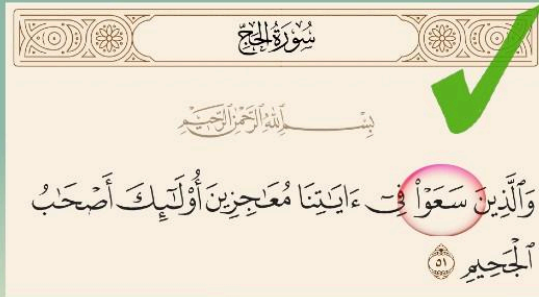 سُورَةُ الحَجِّ
بِسْمِ ٱللَّهِ ٱلرَّحْمَٰنِ ٱلرَّحِيمِ
وَٱلَّذِينَ سَعَوْا۟ فِىٓ ءَايَـٰتِنَا مُعَـٰجِزِينَ أُو۟لَـٰٓئِكَ أَصْحَـٰبُ
ٱلْجَحِيمِ ٥١